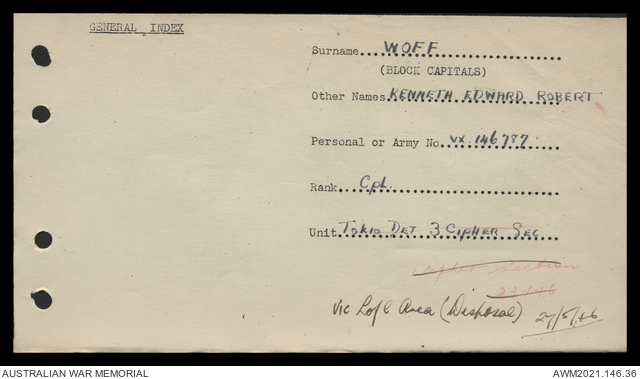 GENERAL INDEX
Surname...WOFF
(BLOCK CAPITALS)
Other Names KENNETH EDWARD ROBERT
Personal or Army No. VX 146787
Rank...Cpl.
Unit. TOKIO DET 3 CIPHER SEC
Cipher Section
23.4.46
Vic L of C Area (Disposal) 27/5/46
AUSTRALIAN WAR MEMORIAL
AWM2021.146.36